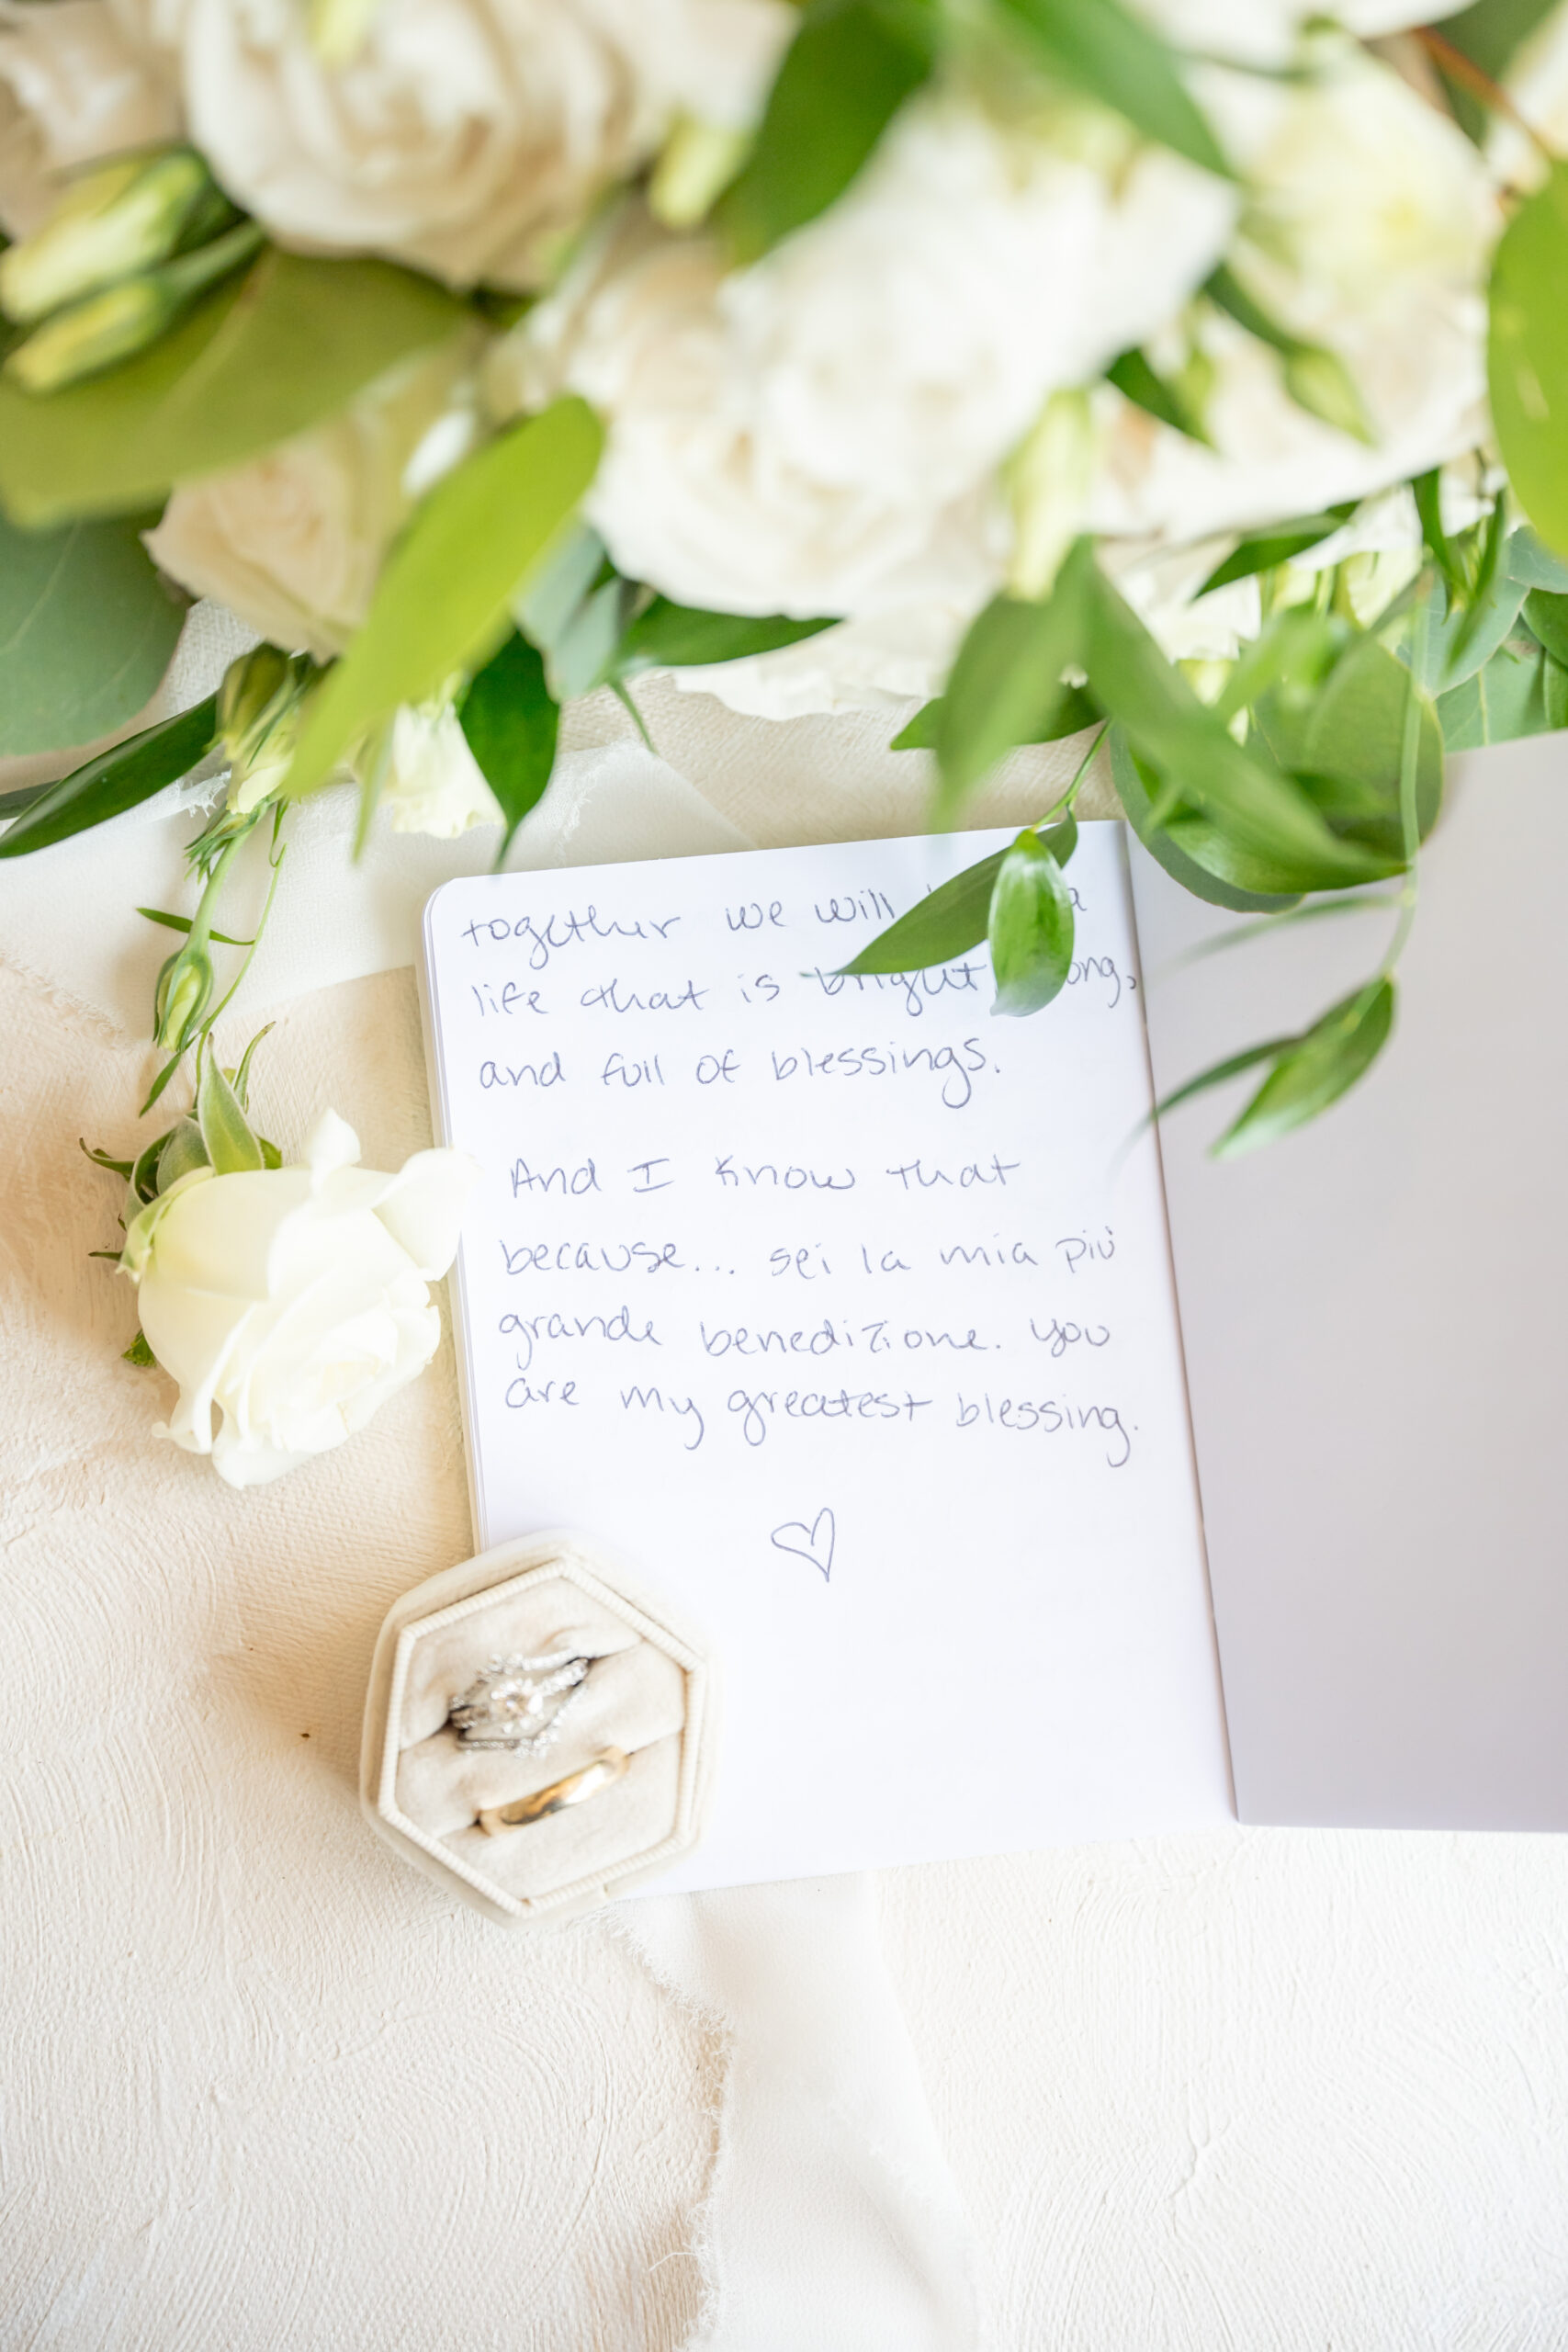 together we will a
life that is bright
and full of blessings.
And I know that
because... sei la mia più
grande benedizione. you
are my greatest blessing.